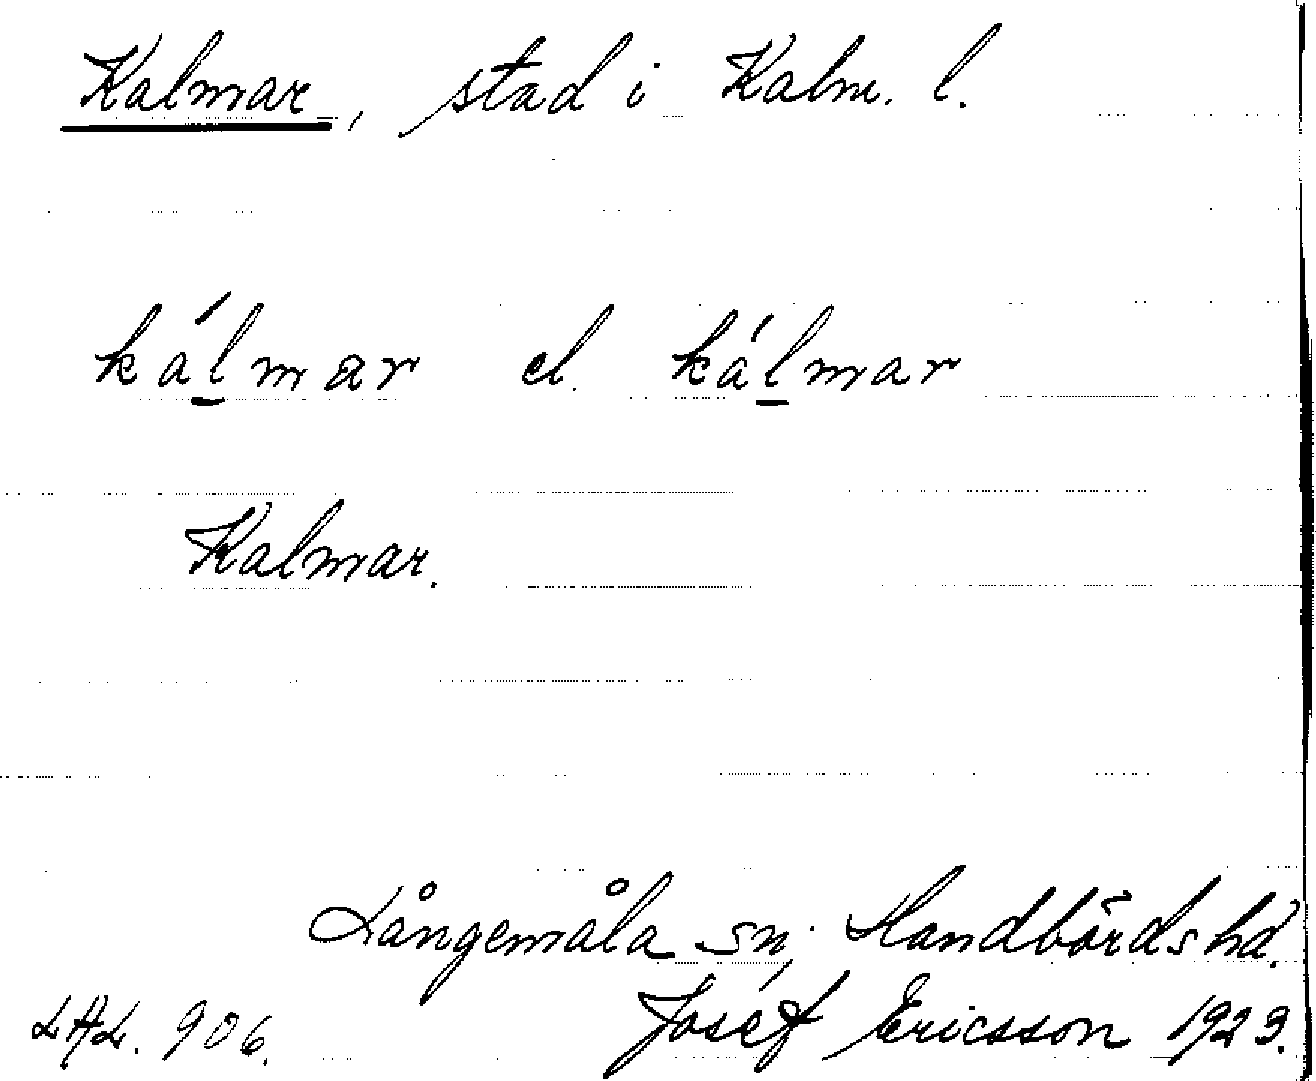 Kalmar, stad i Kalm. l.
kálmar el. kálmar
Kalmar.
Långemåla sn, Handbörds hd.
Josef Ericsson 1923.
LAL. 906.